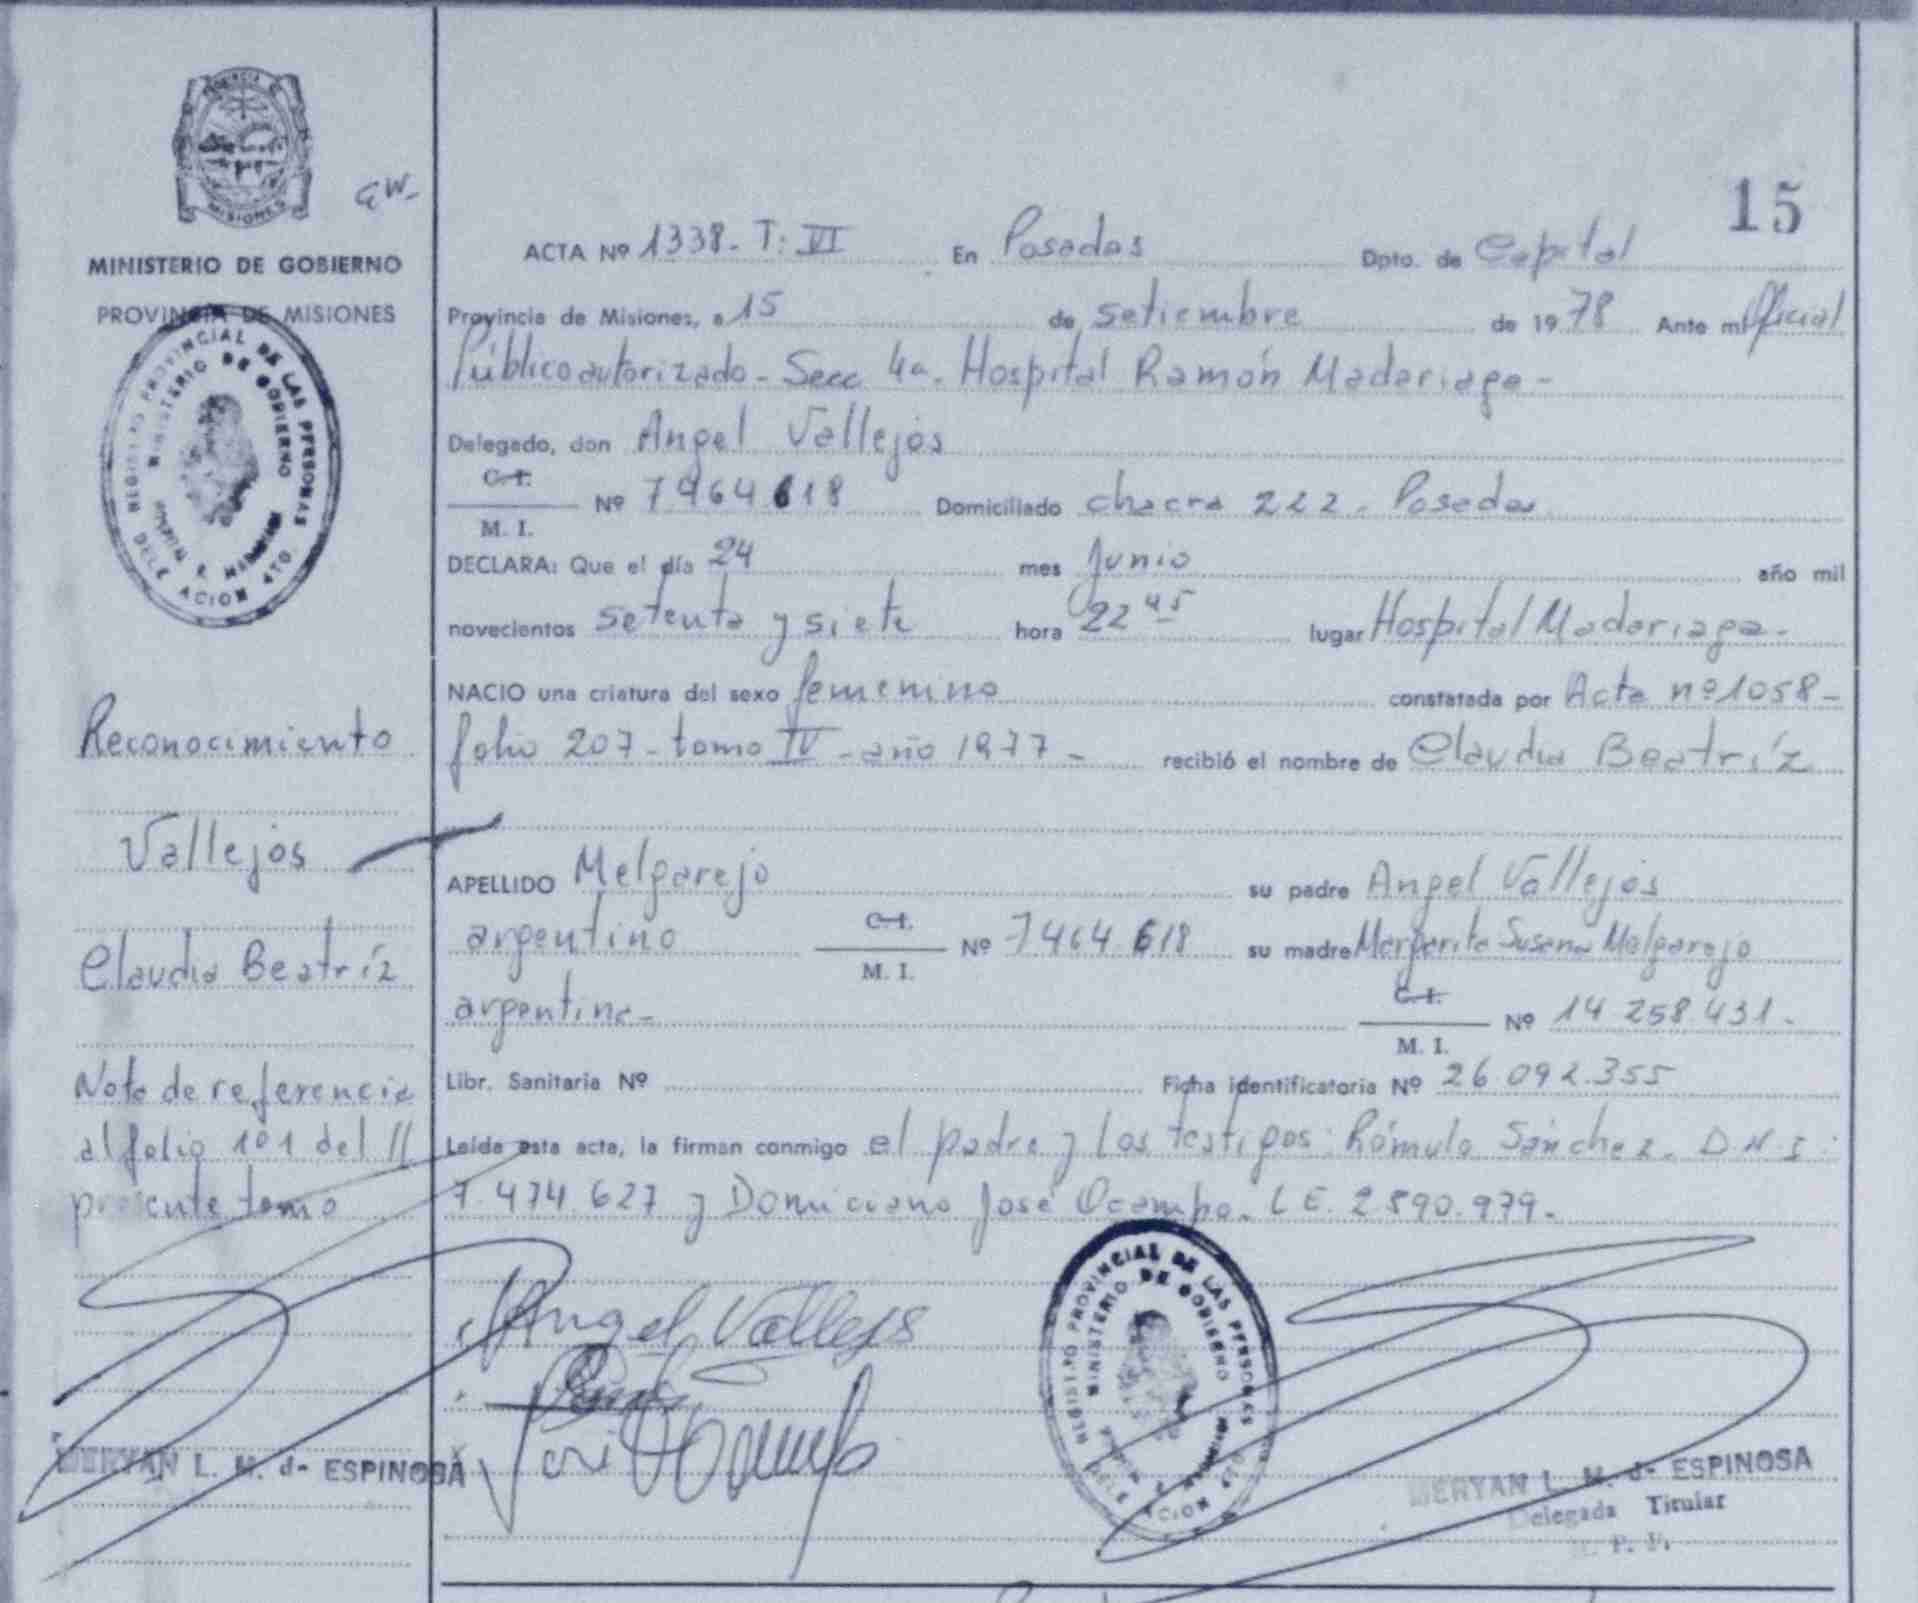 PROVINCIA DE
MISIONES
GW-
MINISTERIO DE GOBIERNO
PROVINCIA DE MISIONES
REGISTRO PROVINCIAL DE LAS PERSONAS
MINISTERIO DE GOBIERNO
DELEGACION 4TO.
Reconocimiento
Vallejos
Claudia Beatríz
Nota de referencia
al folio 101 del //
presente tomo
MERYAN L. M. d- ESPINOSA
15
ACTA Nº 1338- T: VI En Posadas Dpto. de Capital
Provincia de Misiones, a 15 de setiembre de 1978 Ante mi Oficial
Público autorizado - Secc 4a. Hospital Ramón Madariaga -
Delegado, don Angel Vallejos
C. I.
M. I.
Nº 7464618 Domiciliado chacra 222 - Posadas
DECLARA: Que el día 24 mes Junio año mil
novecientos setenta y siete hora 22 45 lugar Hospital Madariaga -
NACIO una criatura del sexo femenino constatada por Acta nº 1058 -
folio 207 - tomo IV - año 1977 - recibió el nombre de Claudia Beatríz
APELLIDO Melgarejo su padre Angel Vallejos
argentino C. I.
M. I.
Nº 7464.618 su madre Margarita Susana Melgarejo
argentina - C. I.
M. I.
Nº 14 258 431 -
Libr. Sanitaria Nº Ficha identificatoria Nº 26.092.355
Leída esta acta, la firman conmigo el padre y los testigos: Rómulo Sánchez. D.N.I:
7.474.627 y Domiciano José Ocampo. LE. 2.590.979 -
Angel Vallejs
José Ocampo
REGISTRO PROVINCIAL DE LAS PERSONAS
MINISTERIO DE GOBIERNO
MERYAN L. M. d- ESPINOSA
Delegada Titular